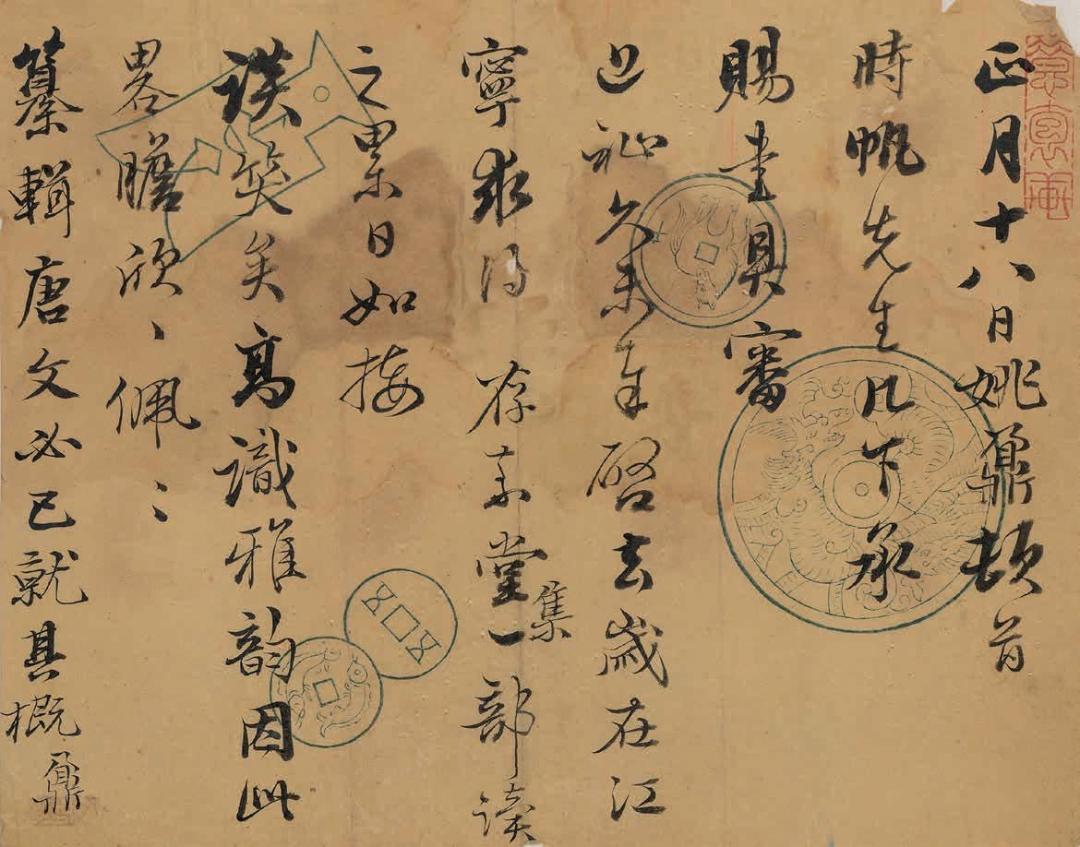 正月十八日姚鼐頓首
時帆先生几下承
賜書具審
近祉久未奉啓去歲在江
寧求得 存素堂集一部讀
之累日如接
談笑矣高識雅韵因此
畧瞻欣〻佩〻
纂輯唐文必已就其概鼐